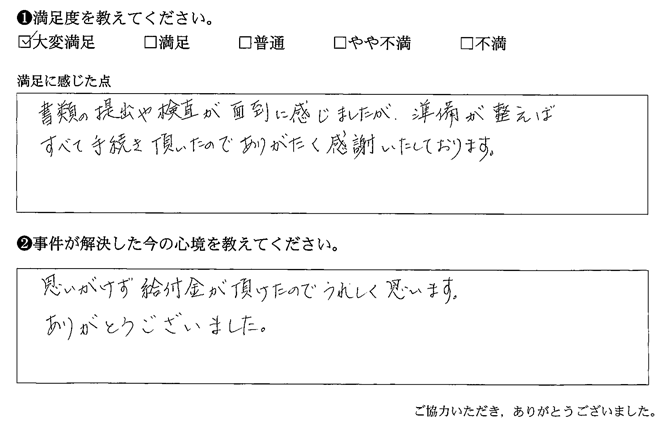 ❶満足度を教えてください。
☑大変満足 □満足 □普通 □やや不満 □不満
満足に感じた点
書類の提出や検査が面倒に感じましたが、準備が整えば
すべて手続き頂いたのでありがたく感謝いたしております。
❷事件が解決した今の心境を教えてください。
思いがけず給付金が頂けたのでうれしく思います。
ありがとうございました。
ご協力いただき、ありがとうございました。